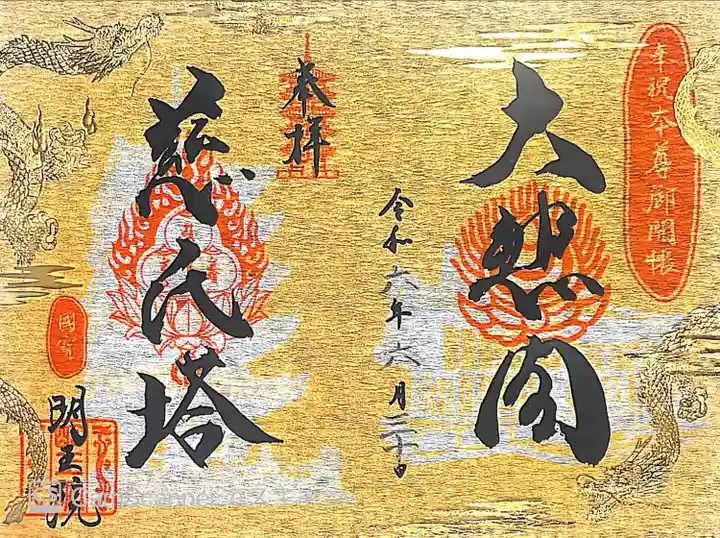 奉祝本尊御開帳
大悲閣
令和六年六月二十日
奉拝
慈氏塔
國寶
明王院